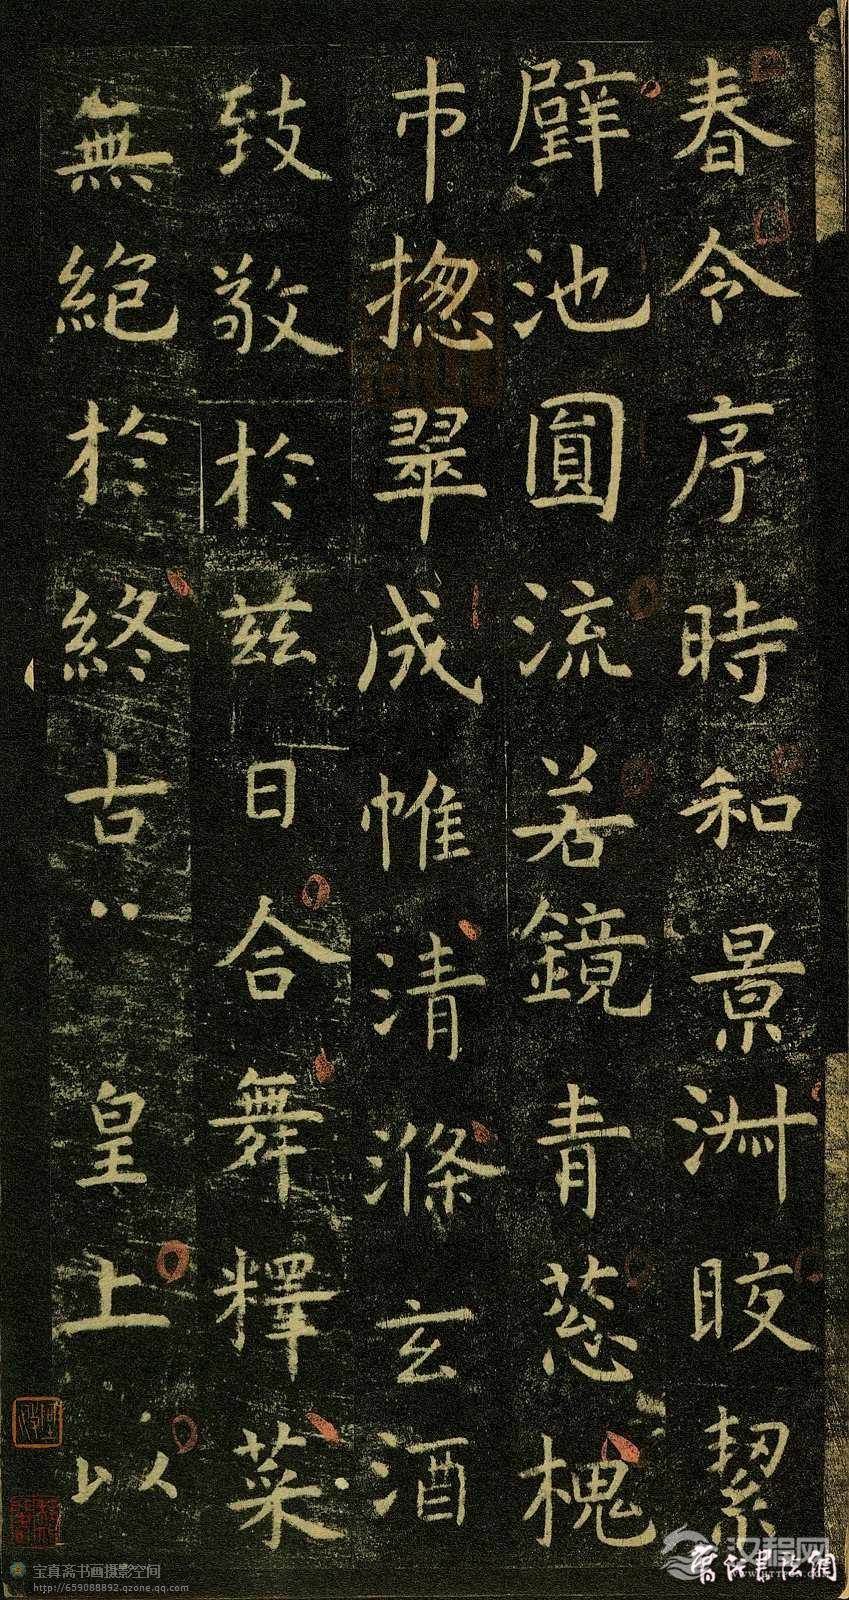 春令序時和景淑晈絜
辟池圓流若鏡青葱槐
市揔翠成帷清滌玄酒
致敬於兹日合舞釋菜
無絕於終古皇上以
宝真斋书画摄影空间
http://659088892.qzone.qq.com
汉程网